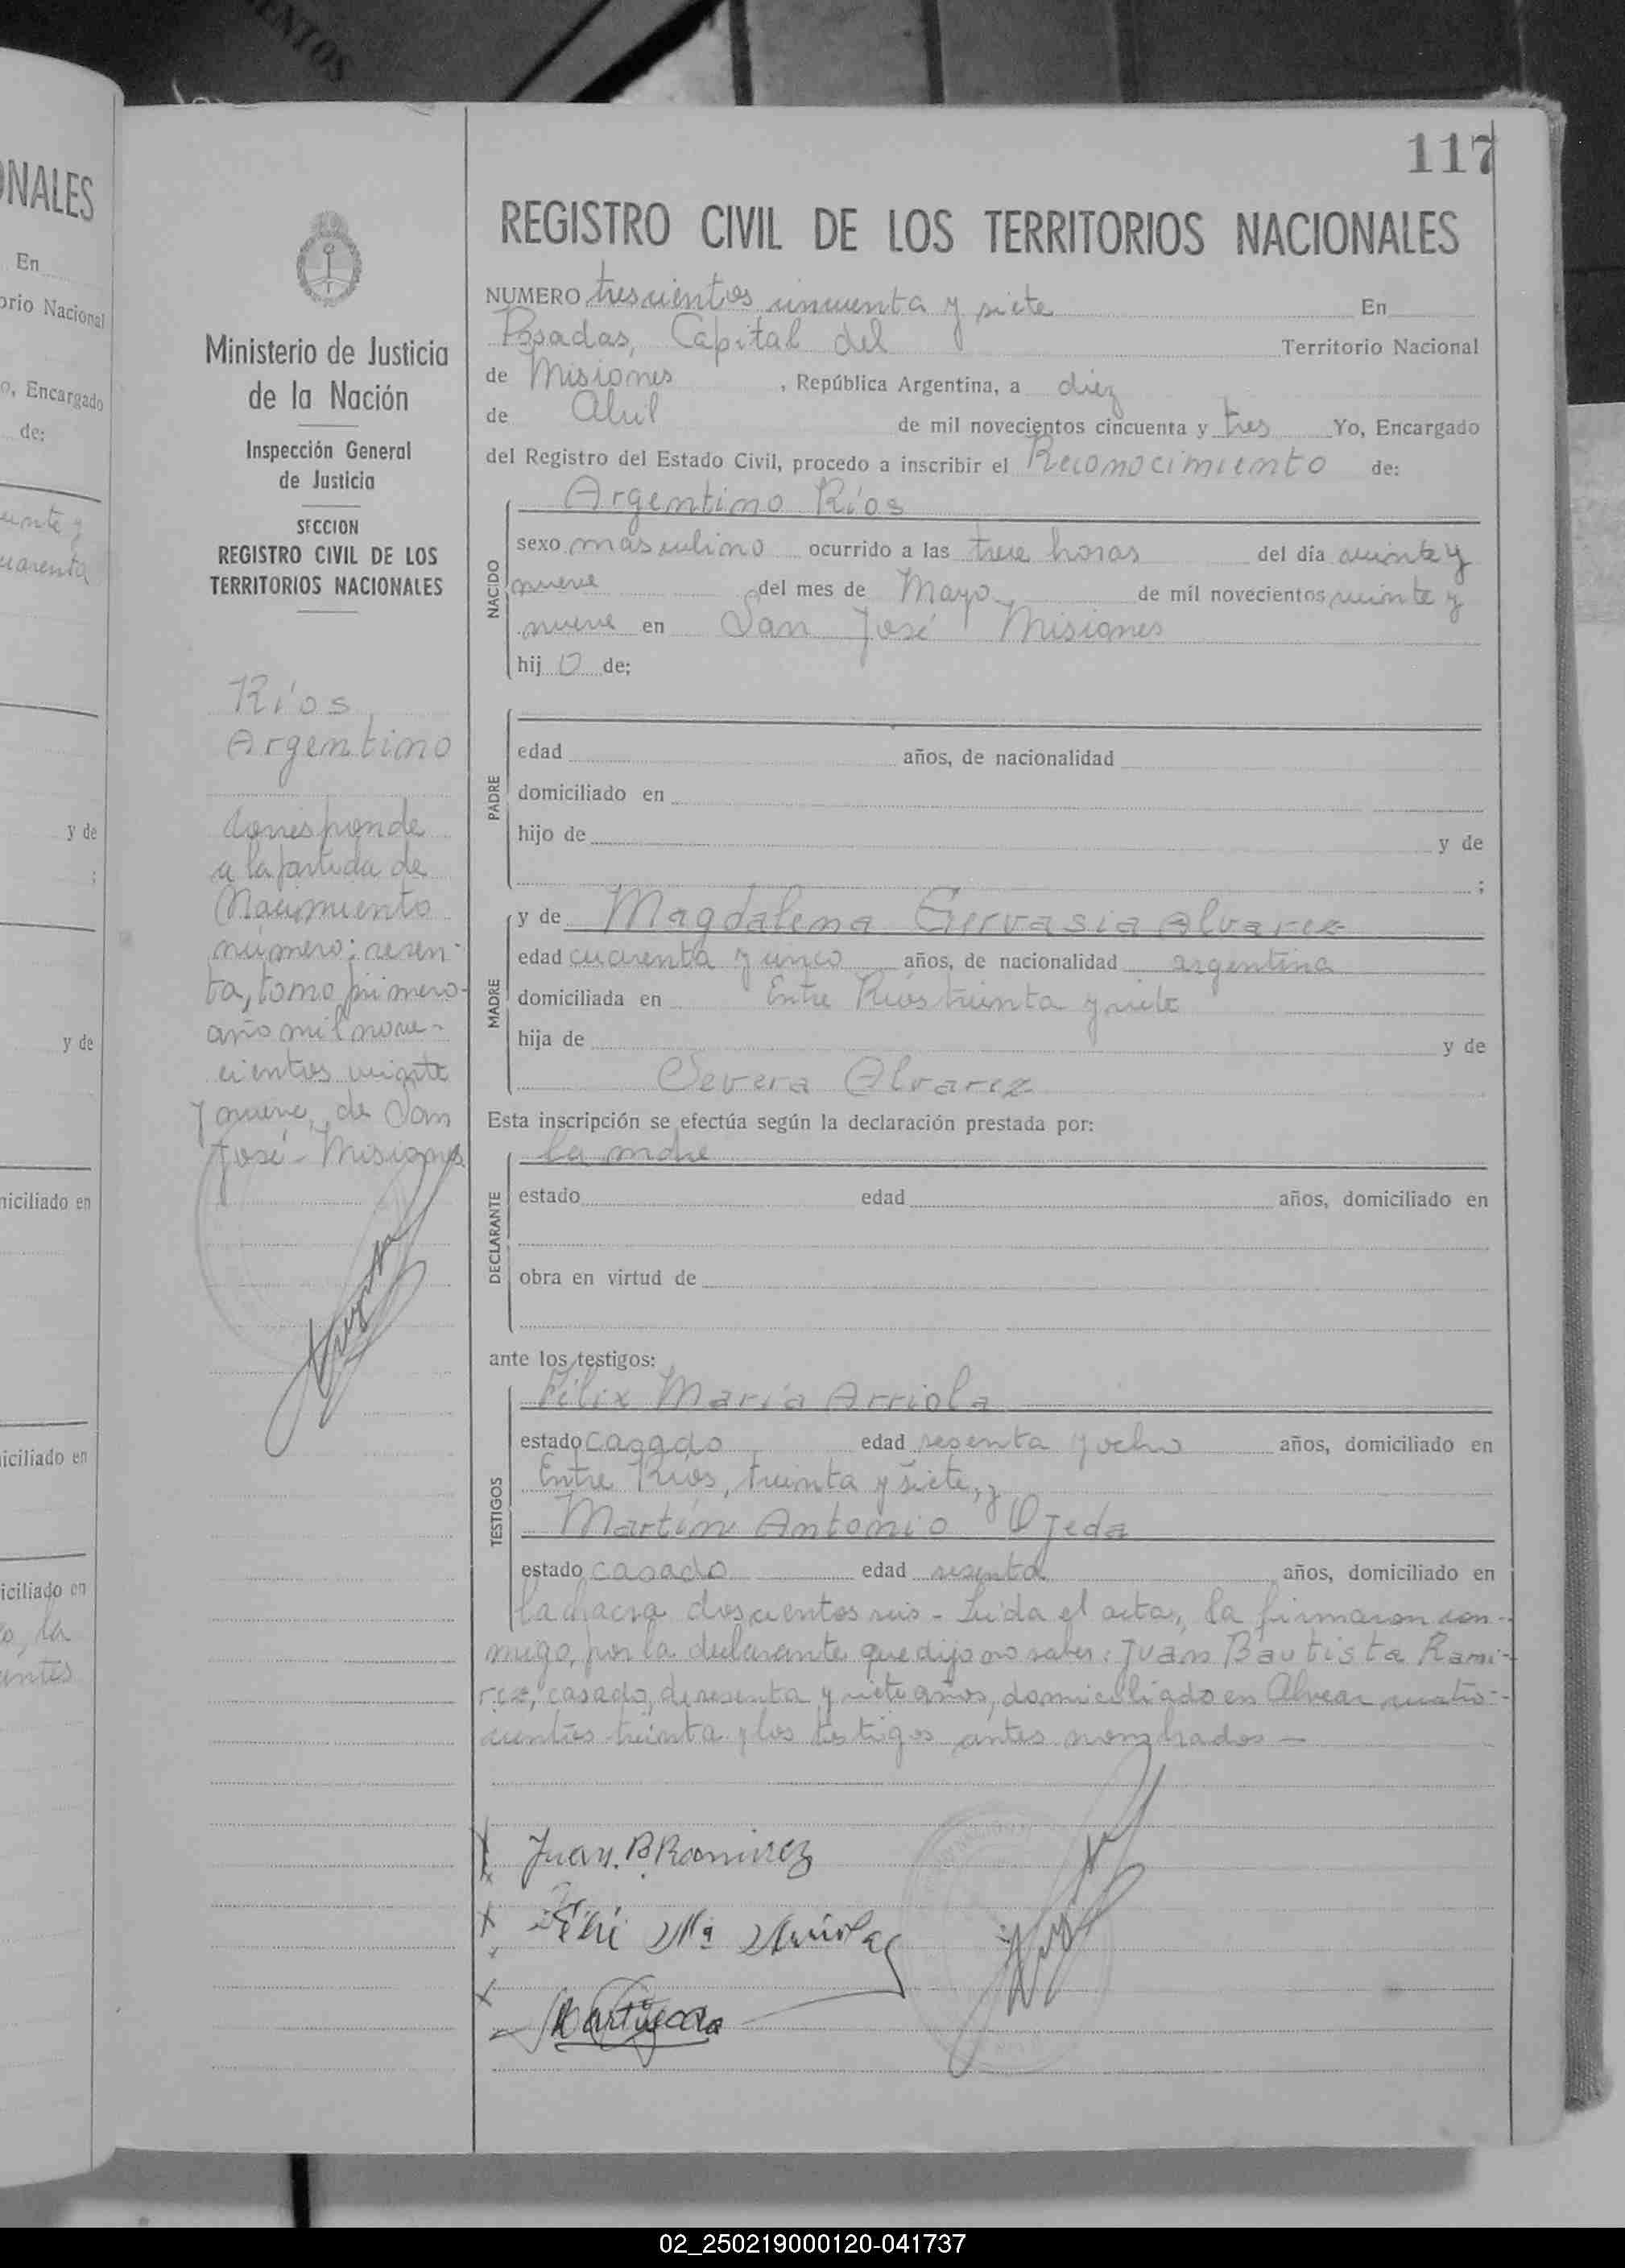 ENTOS
ONALES
En
orio Nacional
o, Encargado
de:
uarenta
y de
;
y de
niciliado en
iciliado en
iciliado en
o, la
antes
117
Ministerio de Justicia
de la Nación
Inspección General
de Justicia
SECCION
REGISTRO CIVIL DE LOS
TERRITORIOS NACIONALES
Ríos
Argentino
Corresponde
a la partida de
Nacimiento
número: sesen-
ta, tomo primero-
año mil nove-
cientos veinte
y nueve, de San
José - Misiones
REGISTRO CIVIL DE LOS TERRITORIOS NACIONALES
NUMERO trescientos cincuenta y siete En
Posadas, Capital del Territorio Nacional
de Misiones, República Argentina, a diez
de Abril de mil novecientos cincuenta y tres Yo, Encargado
del Registro del Estado Civil, procedo a inscribir el Reconocimiento de:
Argentino Ríos
NACIDO
sexo masculino ocurrido a las trece horas del día veinte y
nueve del mes de Mayo de mil novecientos veinte y
nueve en San José Misiones
hij o de:
PADRE
edad años, de nacionalidad
domiciliado en
hijo de y de
;
MADRE
y de Magdalena Gervasia Alvarez
edad cuarenta y unco años, de nacionalidad argentina
domiciliada en Entre Ríos treinta y siete
hija de y de
Severa Alvarez
Esta inscripción se efectúa según la declaración prestada por:
la mdre
DECLARANTE
estado edad años, domiciliado en
obra en virtud de
ante los testigos:
TESTIGOS
Félix María Arriola
estado casado edad sesenta y ocho años, domiciliado en
Entre Ríos, treinta y siete, y
Martín Antonio Ojeda
estado casado edad sesenta años, domiciliado en
la chacra doscientos seis - Leída el acta, la firmaron con-
migo, por la declarante que dijo no saber: Juan Bautista Rami-
rez, casado, de sesenta y siete años, domiciliado en Alvear cuatro-
cientos treinta y los testigos antes nombrados -
Juan. B. Ramirez
02_250219000120-041737